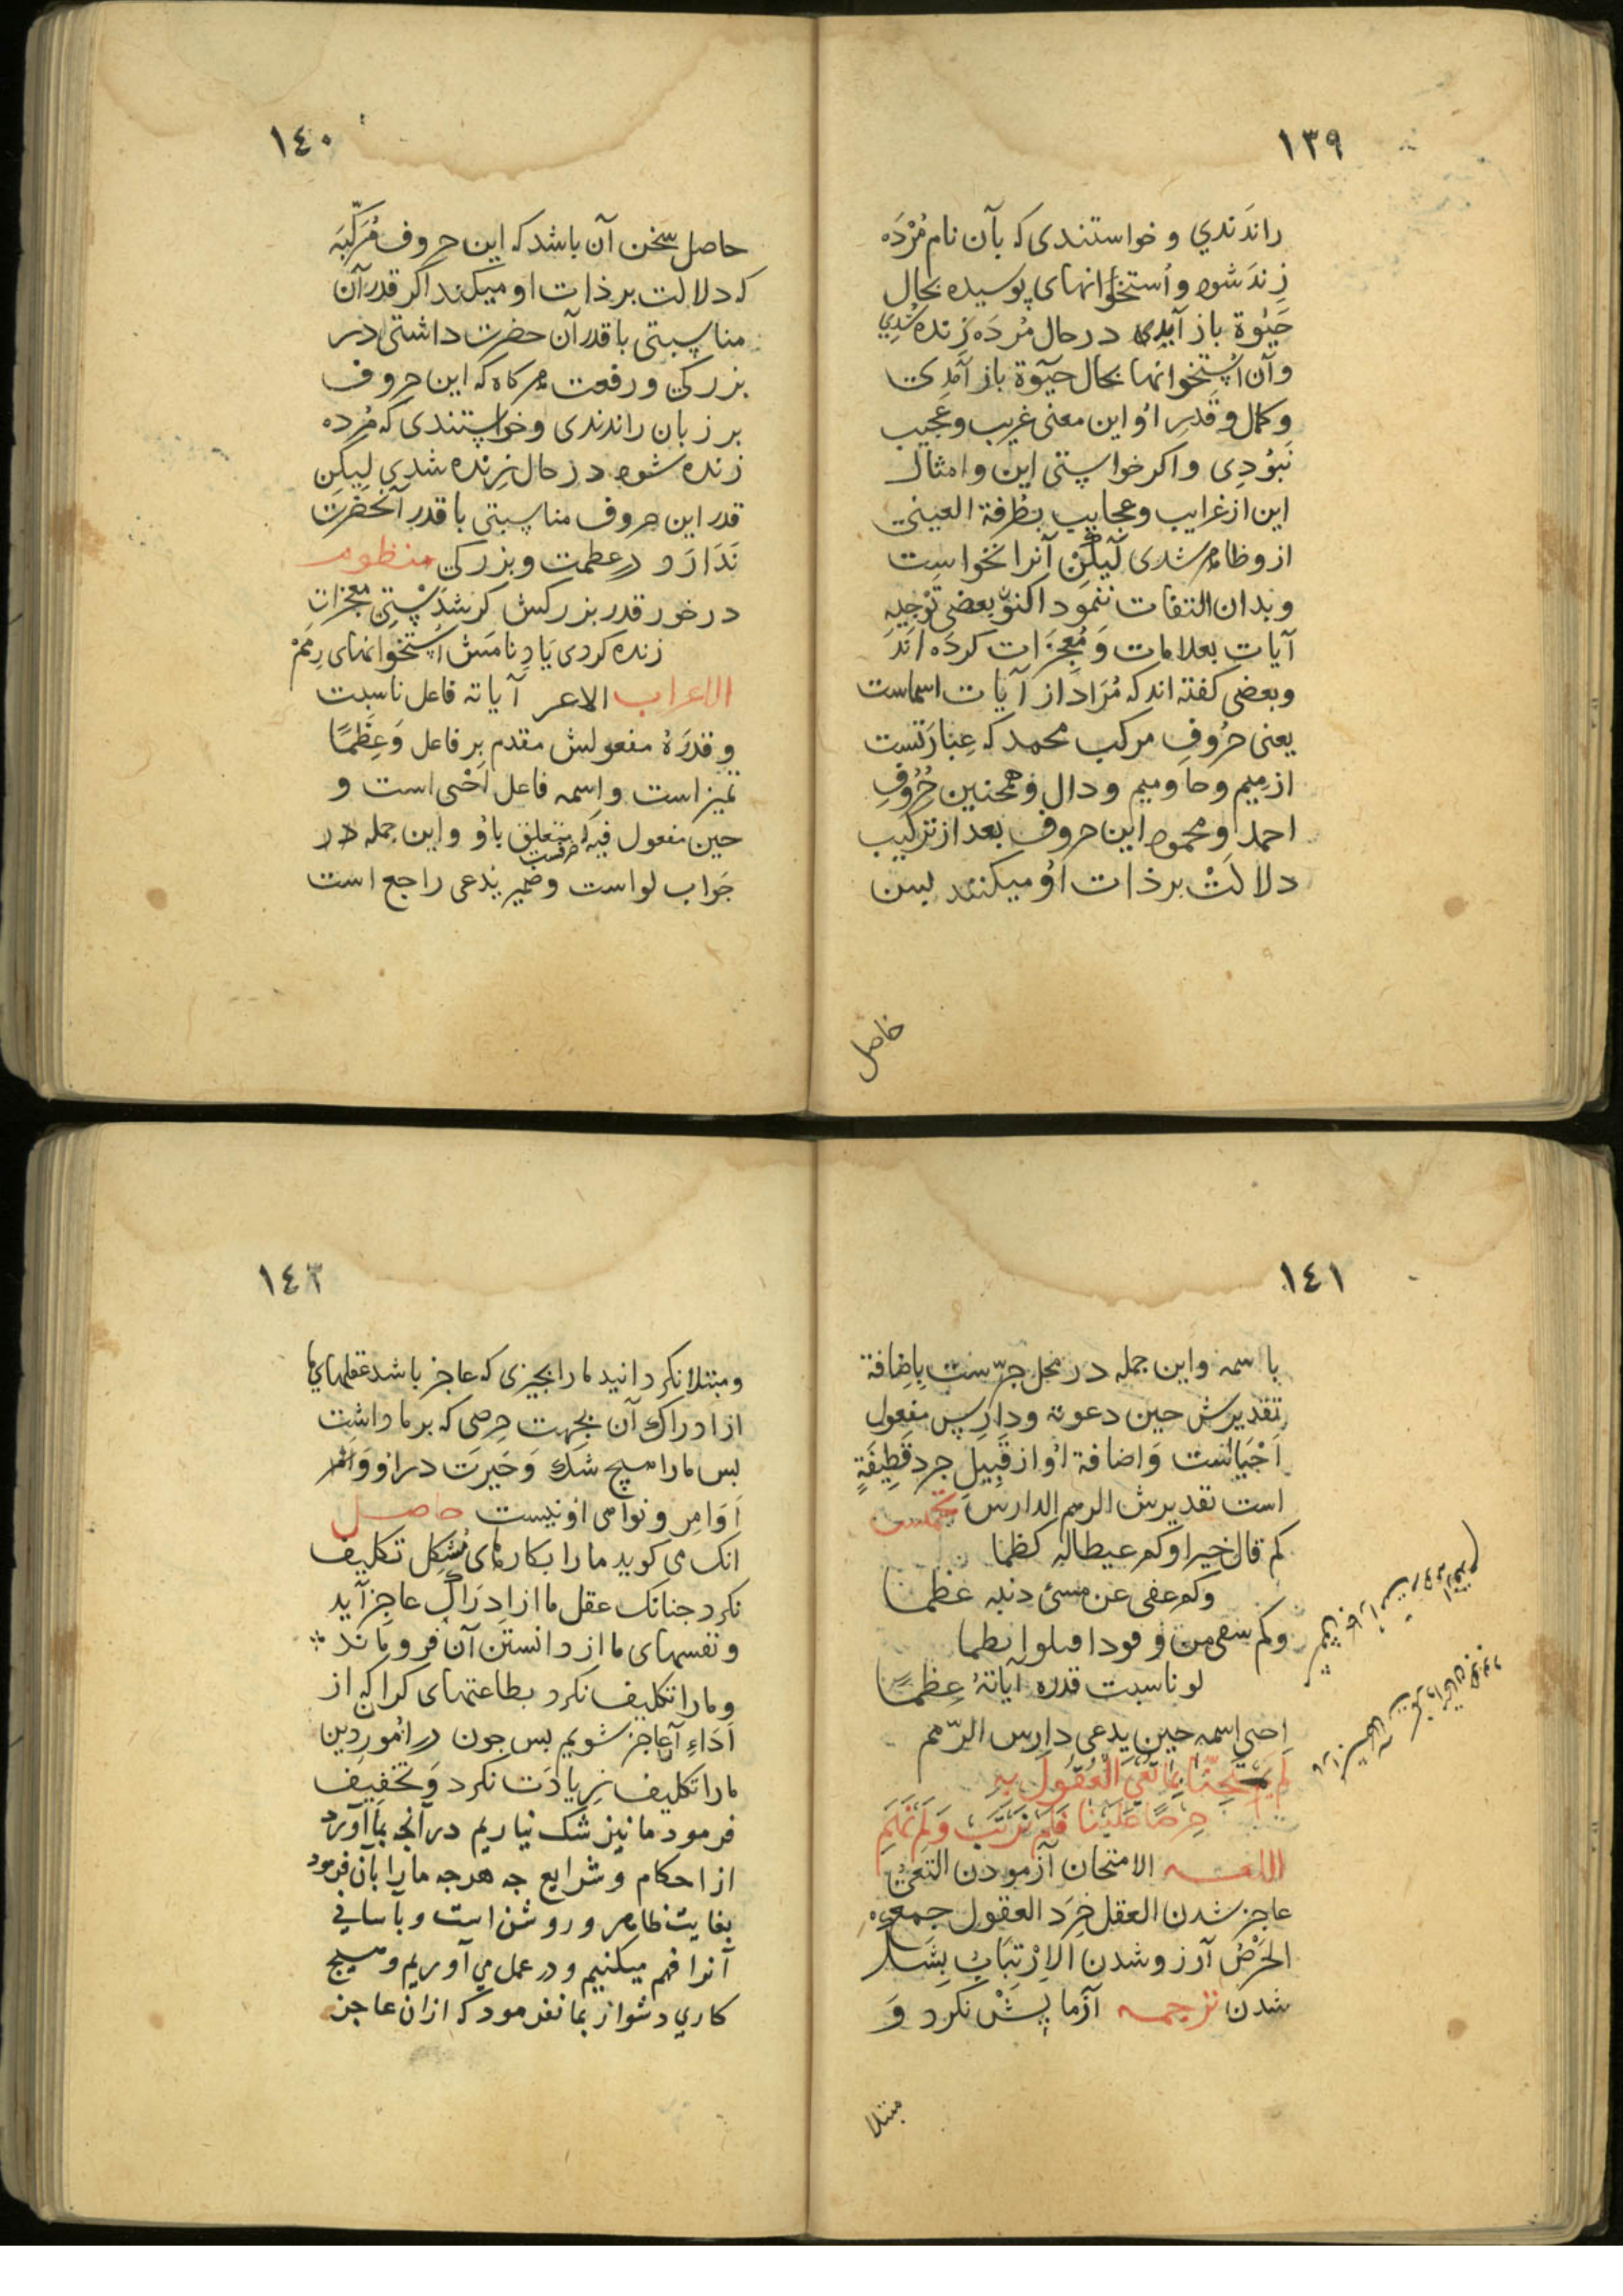 ١٣٩
راندندي و خواستندی که بآن نام مُرْدَه
زِندَ شود و اُستخوانهای پوسیده بحال
حَیٰوة باز آمدی در حال مُردَه زِنده شُدِي
وآن اُستخوانها بحال حیٰوة باز آمدی
و کمال و قَدرِ اوُ این معنی غریب و عَجیب
نَبوُدِی و اکر خواستی این و امثال
این از غرایب و عجایب بِطُرفة العینی
ازو ظاهر شدی لَیکِنْ آنرا نخواست
و بدان التفات ننموُد اکنوُن بعضی تَوْجیهِ
آیات بعلامات وَ مُعجِزَات کردَه اند
و بعضی کفته اند که مُرَاد از آیات اسماست
یعنی حُروُفِ مرکب محمد که عِبارَتست
از میم و حا و میم و دال و همچنین حُرُوُفِ
احمد و محمود این حروف بعد از ترکیب
دلالَتْ بر ذات اوُ میکنند پس
حاصل
١٤٠
حاصل سخن آن باشد که این حروف مُرَکّبَه
که دلالت بر ذات او میکند اکر قدر آن
مناسبتی با قدر آن حضرت داشتی در
بزرکی و رفعت هر کاه که این حروف
بر زبان راندندی و خواستندی که مُرده
زنده شود در حال زنده شدی لیکن
قدر این حروف مناسبتی با قدر آنحضرت
نَدَارَد در عظمت و بزرکی منظوم
در خور قدر بزرکش کر شدَسْتی معجزات
زنده کردی یَادِ نامَش اُستخوانهای رِمَمْ
الاعراب الاعر آیاته فاعل ناسبت
و قدرَهُ مفعولش مقدم بر فاعل وَ عِظَمًا
تمیز است و اسمه فاعل اَحْیی است و
حین مفعول فیه که متعلق باوُ و این جمله در
جَواب لو است و ضمیر یدعی راجع است
١٤١
با اسمه و این جمله در محل جرّ ست بِاِضافة
تقدیرش حین دعوته و دارِس مفعول
اَحْیَاست وَ اضافة اوُ از قَبیلِ جرد قَطِیفَةٍ
است تقدیرش الرمم الدارس مخمس
کم قال خیرا و کم عیطا له کظما
و کم عفی عن مسئ ذنبه عَظما
و کم سقی من وفود اقبلوا بظما
لو ناسبت قدره آیاتهُ عِظمًا
احیی اسمه حین یدعی دارس الرّمم
لَم یَمْتَحِنّا بِمَا تَعْيَ الْعُقُولُ بِهِ
حِرصًا عَلَیْنَا فَلَم نَرْتَب وَ لَم نَهِمِ
اللغه الامتحان آزمودن التعیُ
عاجز شدن العقل خِرَد العقول جمعه
الحَرْصُ آرزو شدن اَلاِرْتِیَابُ بِشَک
شدن ترجمه آزمایِشْ نکرد وَ
مبتلا
١٤٢
و مبتلا نکردانید ما را بچیزی که عاجز باشد عقلهای ما
از ادراك آن بجهت حرصی که بر ما داشت
پس ما را هیچ شَك وَ حَیرت در
اَوَامِر و نواهی او نیست حاصل
انک می کوید ما را بکارهای مُشکِل تکلیف
نکرد چنانک عقل ما از ادراك عاجز آید
و نفسهای ما از دانستن آن فُرو مانَد
و ما را تکلیف نکرد بطاعتهای کران که از
اَدَاءِ آن عاجز شویم پس چون در اُمورِ دین
ما را تکلیف زیادَت نکرد وَ تخفیف
فرمود ما نیز شک نیاریم در آنچه بما آورد
از احکام و شرایع چه هرچه ما را بآن فرمود
بغایت ظاهر و روشن است و بآسانی
آنرا فهم میکنیم و در عمل می آوریم و هیچ
کاري دشوار بما نفرمود که از ان عاجز